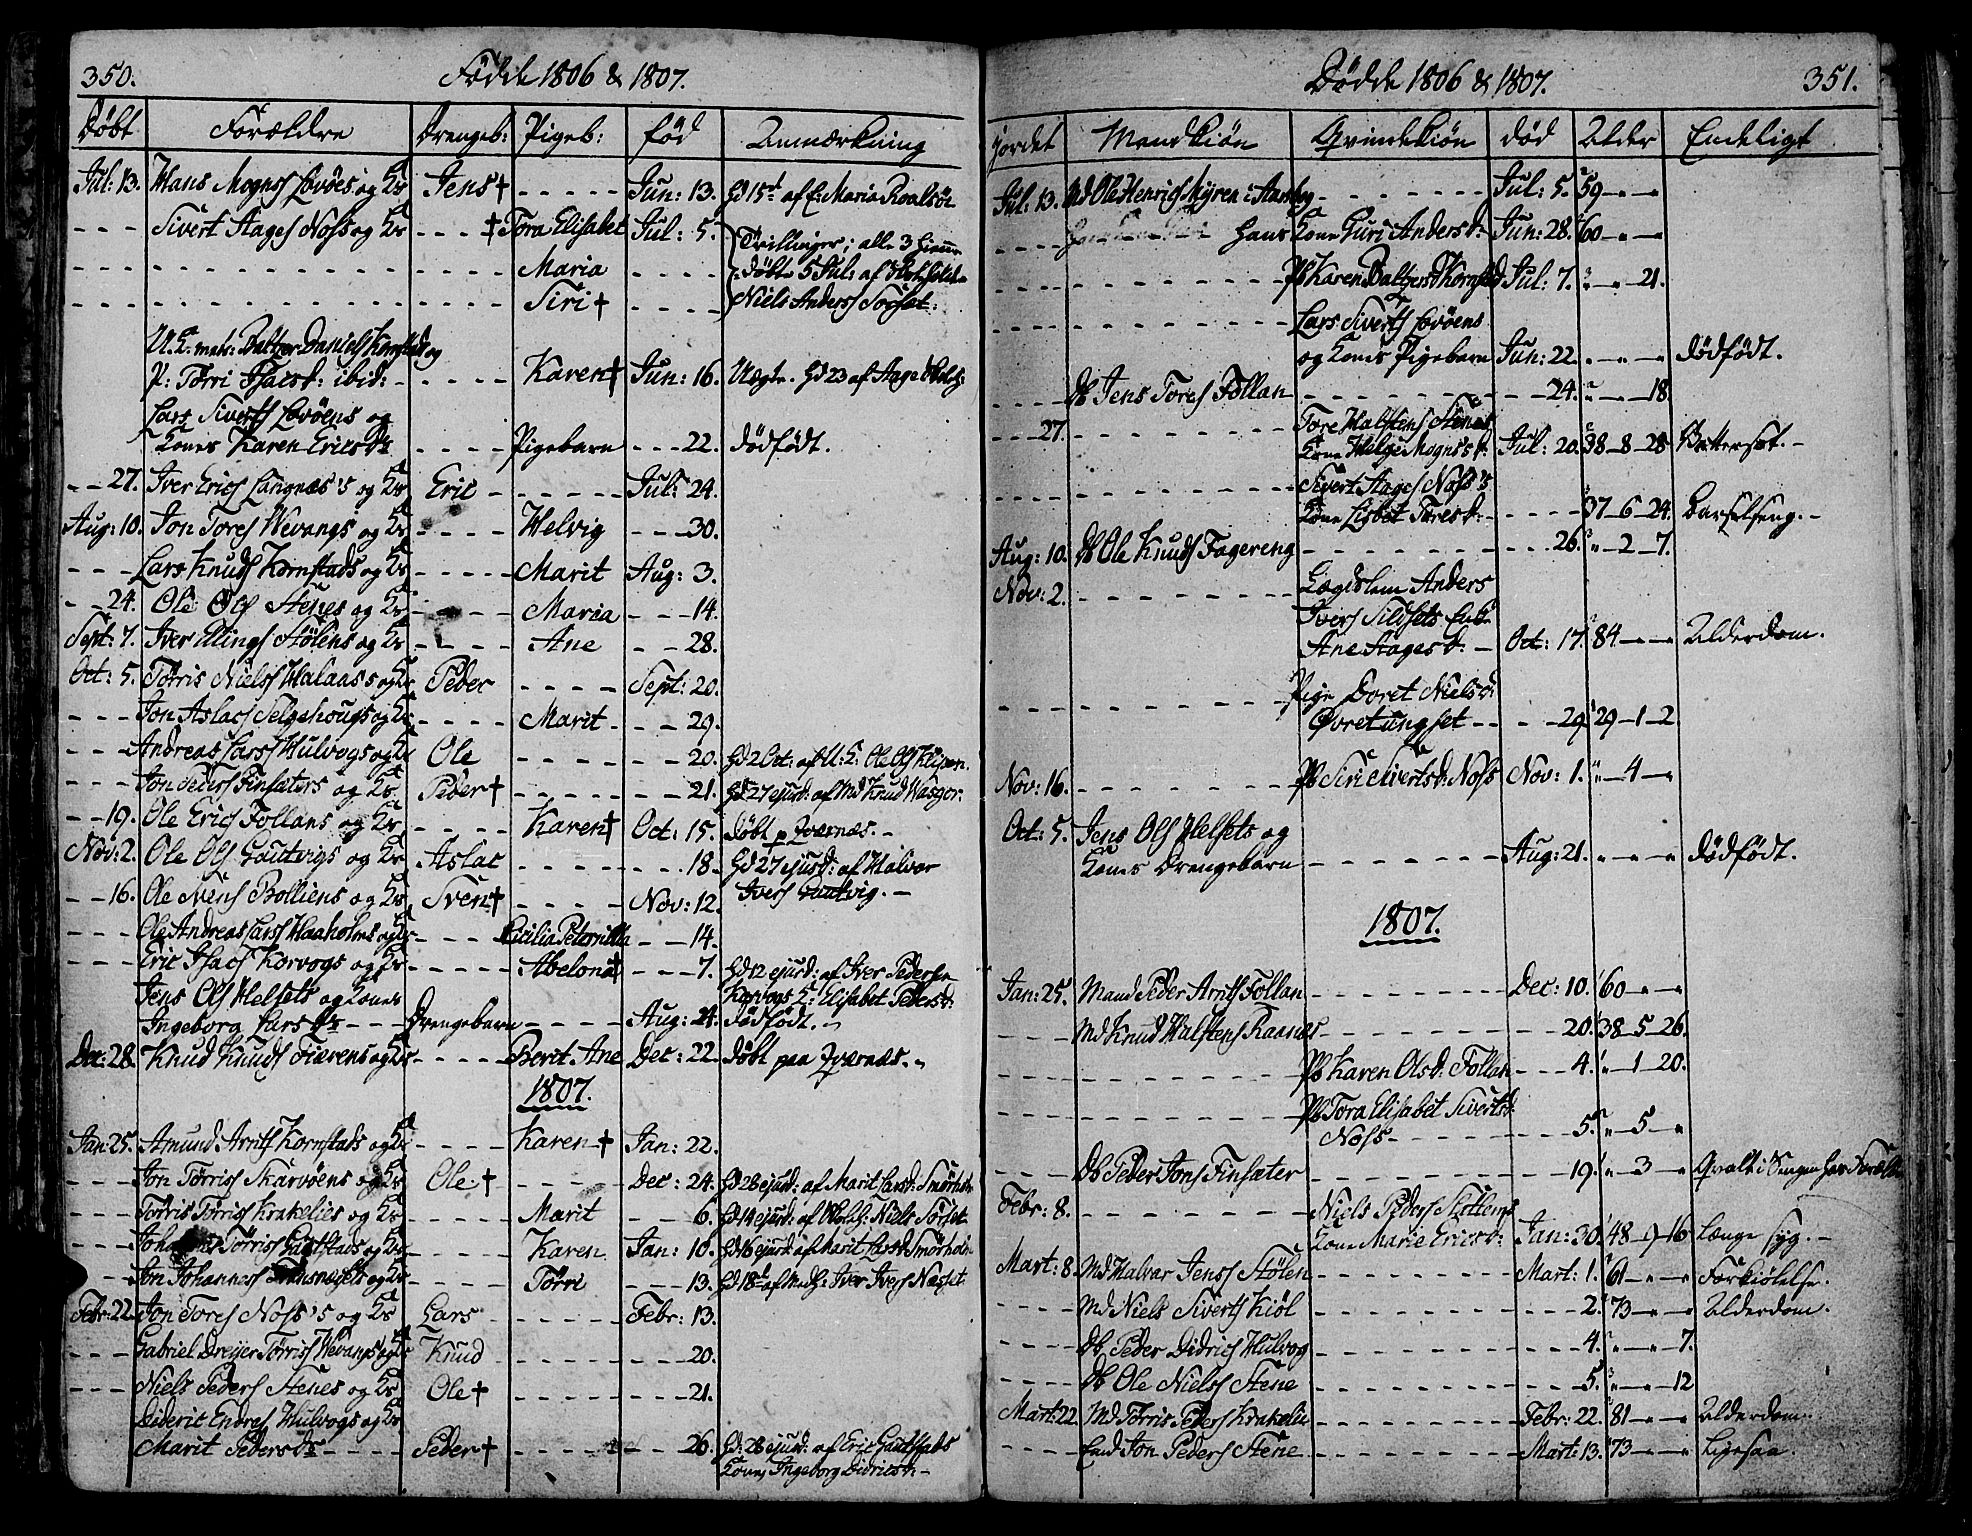 350. Födde 1806 & 1807.
Döbt Forældre Drengeb: Pigeb: föd Anmærkning
Jul: 13. Hans Mognss Lovöes og K Jens † Jun: 13. Hd 15d af E: Maria Roalsön
Sivert Aages Noss og K † Tora Elisabet Jul: 5. Trillinger; alle 3 hjemme
Maria döbte 5 Jul: af
Siri † Niels Anderss Sorset.
U.K. matr: Baltzer Daniels Kornstad og
P: Törri Isacsd: ibid: Karen † Jun: 16. Uægte. Hd 23 af Aage
Lars Siverts Lovöens og
Kones Karen Ericsdr Pigebarn 22. dödfödt.
27. Iver Erics Langnæs's og K Eric Jul: 24.
Aug: 10. Jon Tores Wevangs og K Helvig 30.
Lars Knuds Kornstads og K Marit Aug: 3.
24. Ole Ols Stenes og K Maria 14.
Sept: 7. Iver Ellings Stölens og K Ane 28.
Oct: 5. Törris Nielss Halaas's og K Peder Sept: 20.
Jon Aslacs Selgehougs og K Marit 29.
Andreas Larss Hulvogs og K Ole 20. Hd 2 Oct: af U: K: Ole Ols
Jon Finsæters og K Peder † 21. Hd 27 ejusd: af Md Knud
19. Ole Erics Follans og K Karen † Oct: 15. döbt p Qværnæs.
Nov: 2. Ole Ols Gautvigs og K Aslac 18. Hd 27 ejusd: af Halvor
Ivers Gautvig.
16. Ole Svens Bolliens og K Sven † Nov: 12.
Ole Andreas Larss Haaholms og K Cicilia Peternilla 14.
Eric Isacs Korvogs og K Abelona † 7. Hd 12 ejusd: af Iver Pedersen
Jens Ols Helsets og Kones Korvogs K: Elisabet Pedersd:
Ingeborg Larsdr Drengebarn Aug: 24. dödfödt.
Dec: 28. Knud Knuds Fiærens og K Berit Ane Dec: 22. döbt paa Qværnæs.
1807.
Jan: 25. Amund Arnts Kornstads og K Karen † Jan: 22.
Jon Törris Skarvöens og K Ole † Dec: 24. Hd 28 ejusd: af Marit Larsd: Smörholm
Törris Törriss Krakelies og K Marit 6. Hd 14 ejusd: af Niels Sörset
Törriss Gautstads og K Karen Jan: 10. Hd 16 ejusd: af Marit Larsd: Smörholm
Jon Johannes og K Törri 13. Hd 18d af Iver Ivers Næsset
Febr: 22. Jon Tores Noss's og K Lars Febr: 13.
Gabriel Dreyer Törriss Wevangs og K Knud 20.
Niels Peders Stenes og K Ole † 21.
Dideric Endres Hulvogs og K
Marit Pedersdr Peder † 26. Hd: 28 ejusd: af Eric Gautstads
Kones Ingeborg Didricsd:
Dödde 1806 & 1807. 351.
jordet Mandkiön Qvindekiön död Alder Endeligt
Jul: 13. Md Ole Henrics Myren i Jul: 5. 59
Hans Kone Guri Andersd: Jun: 28. 60
Pb Karen Baltzersd Kornstad Jul: 7. 21.
Lars Siverts Lovöens
og Kones Pigebarn Jun: 22. dödfödt.
Db Jens Tores Follan 24. 18.
27. Tore Halstens Stenes
Kone Helge Mognsd: Jul: 20. 38 - 8 - 28
Sivert Aages Noss's
Kone Lisbet Toresd: 37 - 6 - 24. Barselseng.
Aug: 10. Db Ole Knuds Fagereng 26. 2 - 7.
Nov: 2. Lægdslem Anders
Ivers Sildsets Enke
Ane Aagesd: Oct: 17. 84 Alderdom.
Pige Doret Nielsd:
Övretungset 29. 29 - 1 - 2.
Nov: 16. Pb Siri Sivertsd: Noss Nov: 1. 4
Oct: 5. Jens Ols Helsets og
Kones Drengebarn Aug: 21. dödfödt.
1807.
Jan: 25. Mand Peder Arnts Follan Dec: 10. 60
Md Knud Halstens Raanes 20. 38 - 5 - 26.
Pb Karen Olsd: Follan 4. 1 - 20.
Pb Tora Elisabet Sivertsd:
Noss 5. 5
Db Peder Jons Finsæter 19. 3 Qvalt i Sengen hos Foræld
Febr: 8. Niels Peders
Kone Marie Ericsd: Jan: 30. 48 - 9 - 16 længe syg.
Mart: 8. Md Halvor Jenss Stölen Mart: 1. 61 Forkiölelse.
Md Niels Siverts Kiöl 2. 73 Alderdom.
Db Peder Didrics Hulvog 4. 7.
Db Ole Nielss Stene 5. 12
Mart: 22. Md Törris Peders Krakelie Febr: 22. 81 Alderdom.
Enkd Jon Peders Stene Mart: 13. 73 Ligesaa.